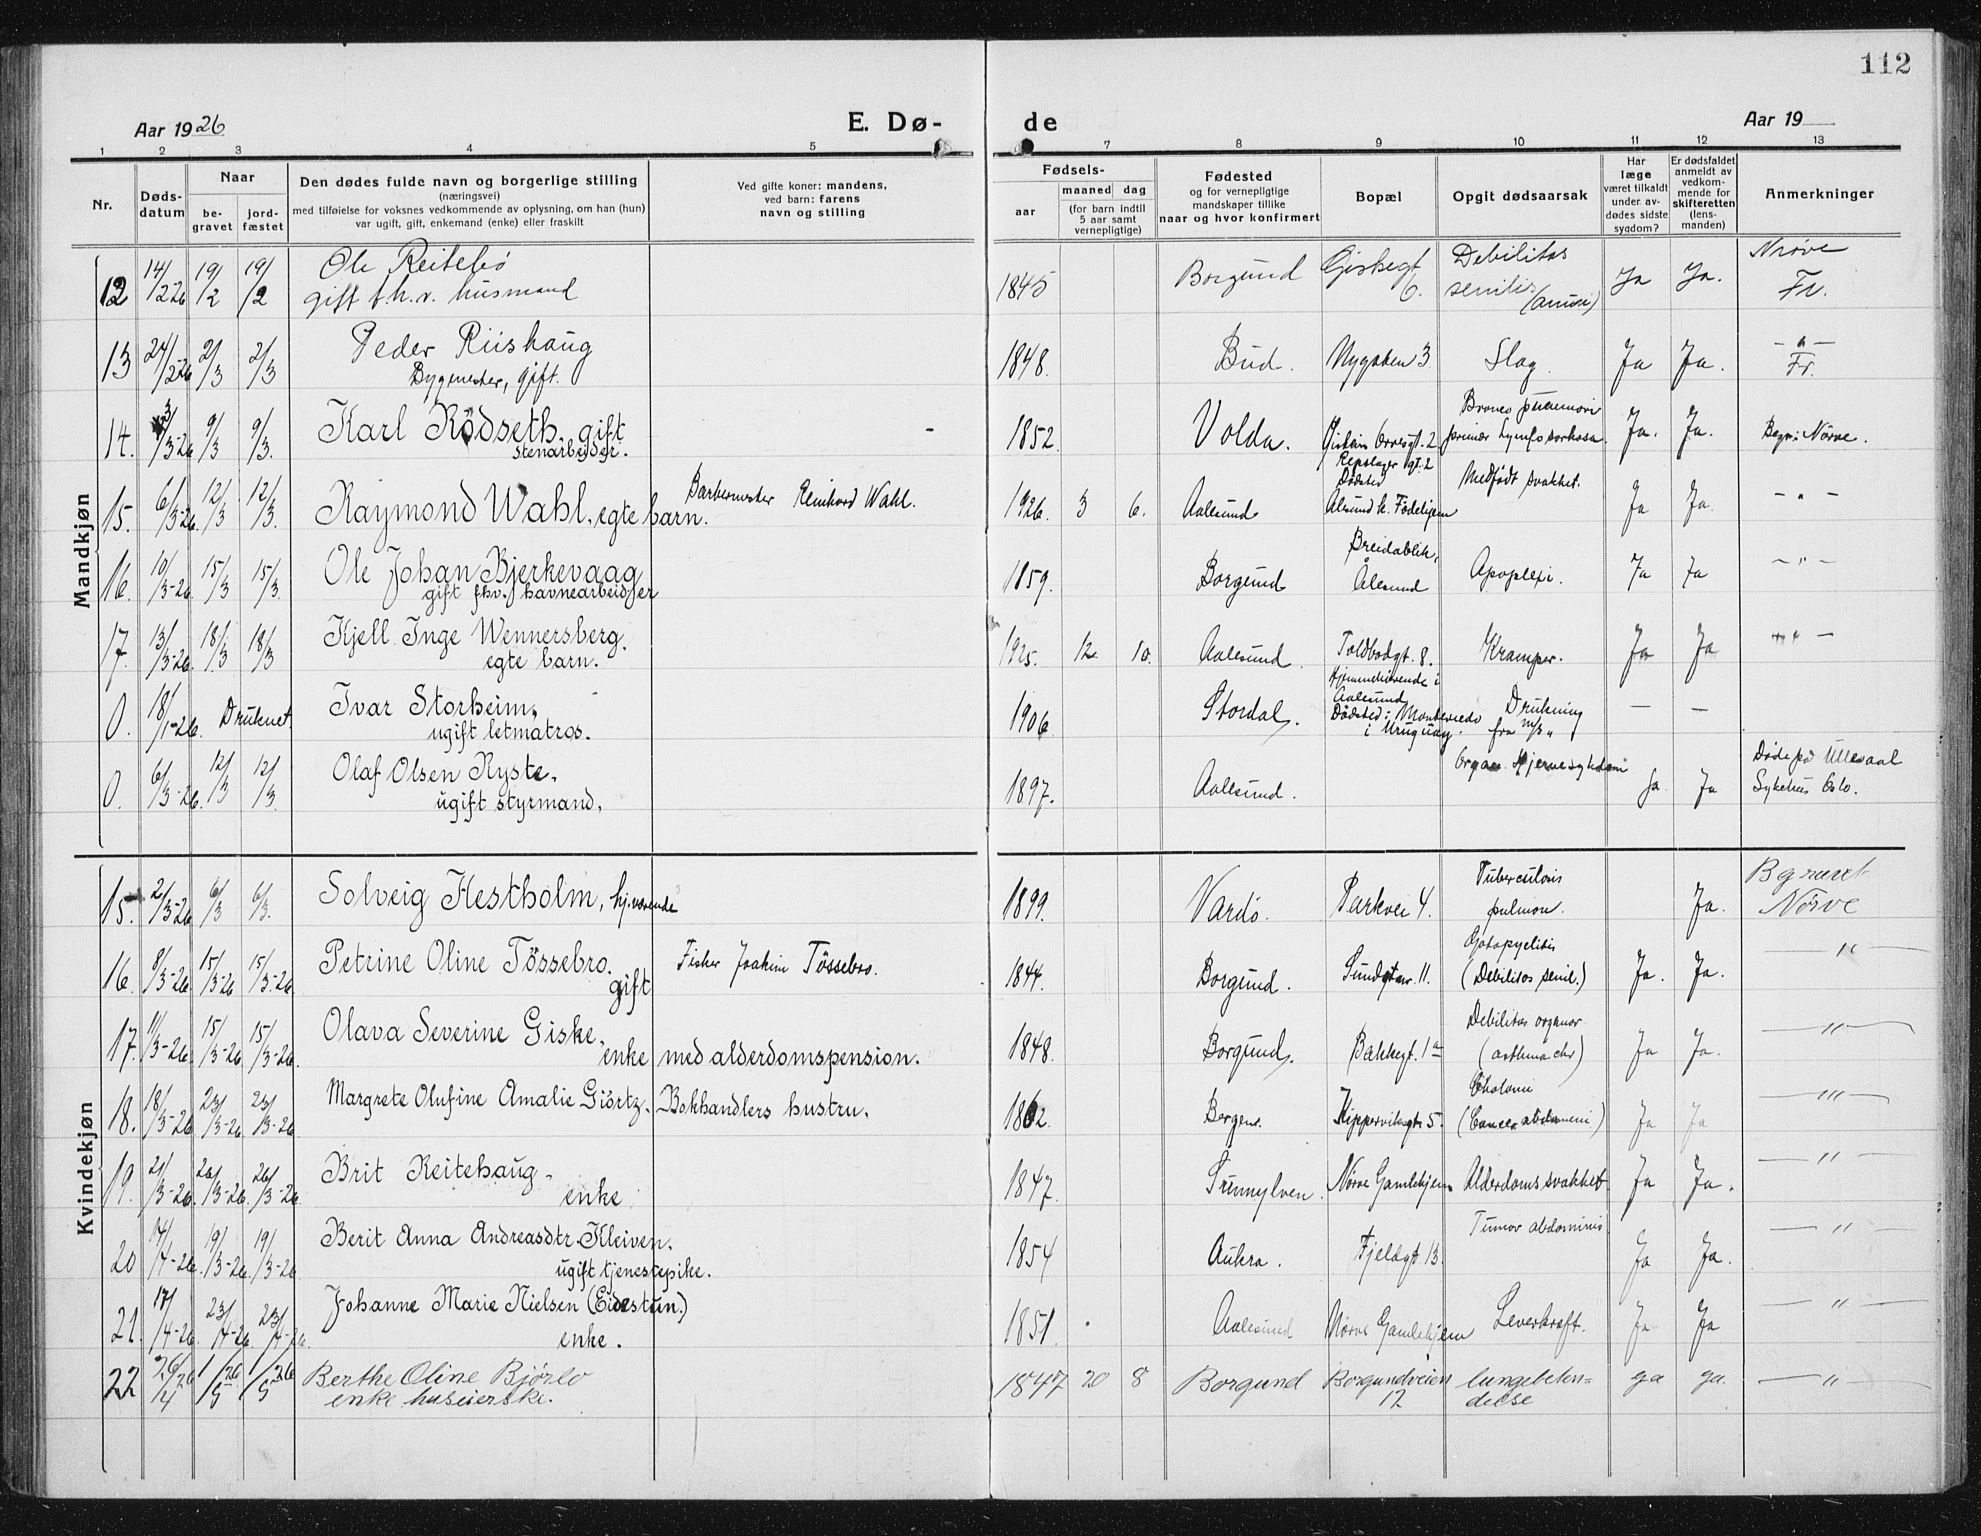 112
Aar 1926
E. Dø-
de
Aar 19
1 2 3 4 5 7 8 9 10 11 12 13
Nr.
Døds-
datum
Naar
be-
gravet
jord-
fæstet
Den dødes fulde navn og borgerlige stilling
(næringsvei)
med tilføielse for voksnes vedkommende av oplysning, om han (hun)
var ugift, gift, enkemand (enke) eller fraskilt
Ved gifte koner: mandens,
ved barn: farens
navn og stilling
Fødsels-
aar
maaned
dag
(for barn indtil
5 aar samt
vernepligtige)
Fødested
og for vernepligtige
mandskaper tillike
naar og hvor konfirmert
Bopæl
Opgit dødsaarsak
Har
læge
været tilkaldt
under av-
dødes sidste
sygdom?
Er dødsfaldet
anmeldt av
vedkom-
mende for
skifteretten
(lens-
manden)
Anmerkninger
Mandkjøn
12 14/2-26 19/2 19/2 Ole Reitebø
gift f.h.v. husmand
1845 Borgund Giskegt 6. Debilitas
senilis Ja Ja. Nørve
Fr.
13 24/2-26 2/3 2/3 Peder Riishaug
Bygmester, gift.
1848. Bud. Nygaten 3 Slag. Ja Ja. — " —
Fr.
14. 3/3-26 9/3 9/3. Karl Rödseth, gift
stenarbeider.
1852. Volda. Ja. Ja. Begr: Nørve.
Repslager gt. 2
15. 6/3-26 12/3 12/3. Raymond Wahl, egte barn. Barbermester Reinhard Wahl.
1926. 3 6. Aalesund Dødsted
Alesund k. Fødehjem Medfødt svakhet. Ja Ja. — " —
16. 10/3-26 15/3 15/3. Ole Johan Bjerkevaag
gift fhv. havnearbeider
1859. Borgund Breidablik,
Ålesund Apoplexi. Ja Ja — " —
17. 13/3-26. 18/3 18/3 Kjell Inge Wennersberg.
egte barn.
1925. 12 10. Aalesund. Toldbodgt. 8. Kramper. Ja Ja — " —
0. 18/1-26. Druknet Ivar Storheim,
ugift letmatros.
1906 Stordal. Hjemmehørende i
Aalesund
Dødsted: Montevideo
i Uruguay. Drukning
fra m/s " — —
0. 6/3-26. 12/3 12/3. Olaf Olsen Ryste,
ugift styrmand.
1897. Aalesund. Organ. Hjernesykdom Ja Ja Døde på Ullevaal
Sykehus Oslo.
Kvindekjøn
15. 2/3-26 6/3 6/3. Solveig Hestholm, hj.værende
1899. Vardö. Parkvei 4. Tuberculosis
pulmon. Ja. Bgravet
Nörve
16. 8/3-26 15/3-26 15/3-26 Petrine Oline Tössebro. Fisker Joakim Tössebro.
gift
1844. Borgund. Sundgt nr. 11. (Debilitas senil.) Ja. Ja. — " —
17. 11/3-26. 15/3-26 15/3-26. Olava Severine Giske,
enke med alderdomspension.
1848. Borgund. Bakkegt. 1a Debilitas organor
(asthma chr) Ja Ja. — " —
18. 18/3-26 23/3-26 23/3-26 Margrete Olufine Amalie Giörtz. Bokhandlers hustru.
1862. Bergen. Kippervikegt 5. (Cancer abdomeni) Ja Ja — " —
19. 21/3-26 26/3-26. 26/3-26 Brit Reitehaug
enke
1847. Sunnylven. Nörve Gamlehjem Alderdomssvakhet Ja Ja. — " —
20 14/4-26. 19/3-26. 19/3-26 Berit Anna Andreasdtr Kleiven.
ugift tjenestepike.
1854 Aukra. Fjeldgt 13. Tumor abdominis Ja Ja. — " —
21. 17/4-26. 23/4-26. 23/4-26. Johanne Marie Nielsen (Eidestun.)
enke.
1851. Aalesund Nörve Gamlehjem Leverkræft. Ja Ja — " —
22 26/4 26 1/5 26 1/5 26 Berthe Oline Bjørlo
enke huseierske.
1847 20 8 Borgund Borgundveien
12 lungebeten=
delse ja ja. — " —